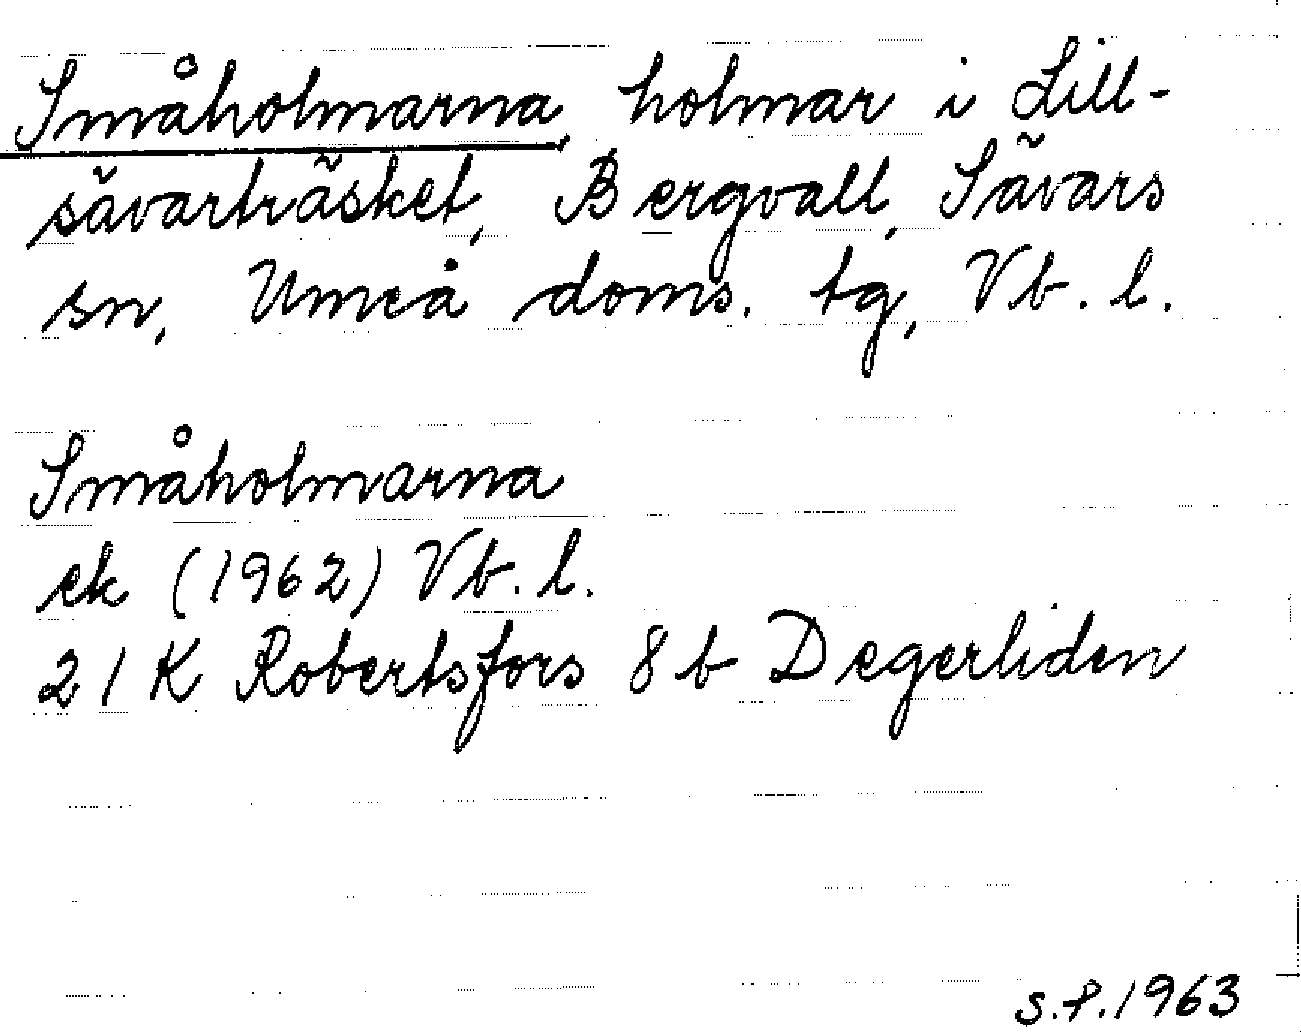 Småholmarna, holmar i Lill-
sävarträsket, Bergvall, Sävars
sn, Umeå doms. tg, Vb. l.
Småholmarna
ek (1962) Vb. l.
21 K Robertsfors 8 b Degerliden
S.P. 1963